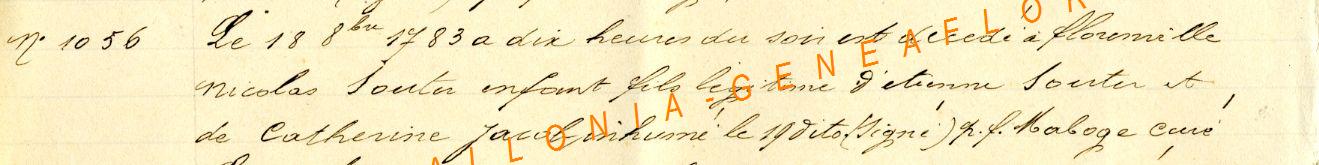 N° 1056 Le 18 8bre 1783 a dix heures du soir est décédé à florenville
Nicolas Souter enfant fils légitime d'etienne Souter et
de Catherine Jacob inhumé le 19 dito (signé) p. f. Maboge curé
ALLONIA-GENEAFLOR